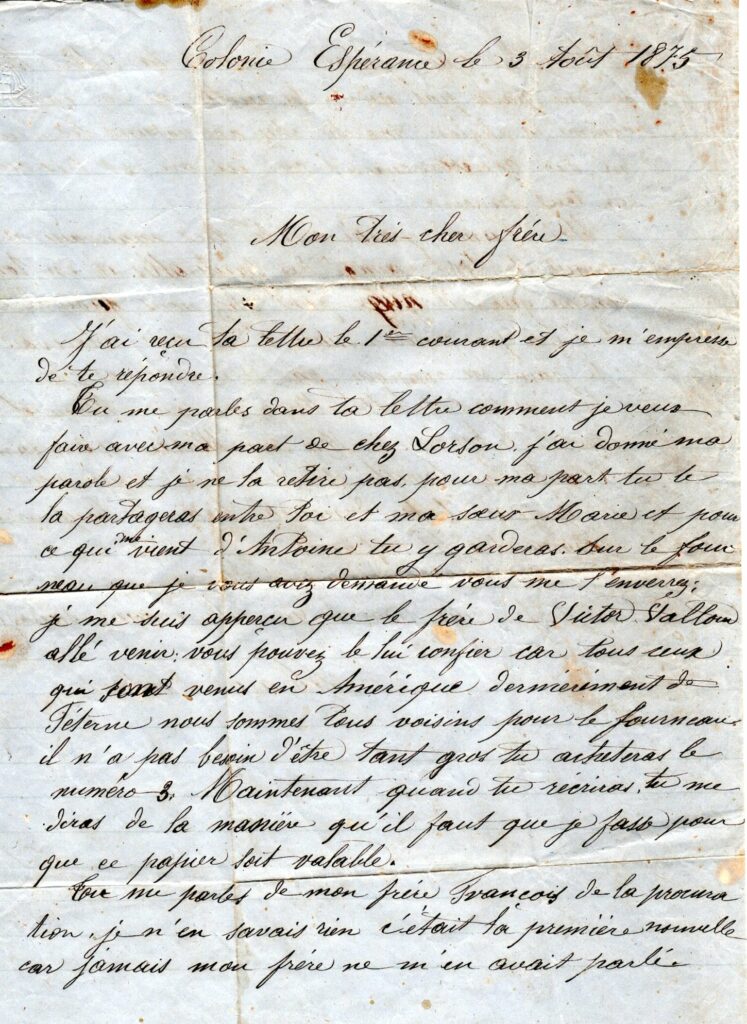 Colonie Espérance le 3 Août 1875
Mon très cher frére
J'ai reçu ta lettre le 1er courant et je m'empresse
de te répondre.
Tu me parles dans ta lettre comment je veux
faire avec ma part de chez Lorson, j'ai donné ma
parole et je ne la retire pas, pour ma part tu te
la partageras entre toi et ma sœur Marie et pour
ce qui me vient d'Antoine tu y garderas. Sur le four
neau que je vous avez demandé vous me l'enverrez;
je me suis apperçu que le frére de Victor Vallon
allé venir; vous pouvez le lui confier car tous ceux
qui sont venus en Amérique dernièrement de
Féterne nous sommes tous voisins pour le fourneau
il n'a pas besoin d'être tant gros tu acheteras le
numéro 3. Maintenant quand tu récriras, tu me
diras de la manière qu'il faut que je fasse pour
que ce papier soit valable.
Tu me parles de mon frére François de la procura
tion, je n'en savais rien c'était la première nouvelle
car jamais mon frére ne m'en avait parlé